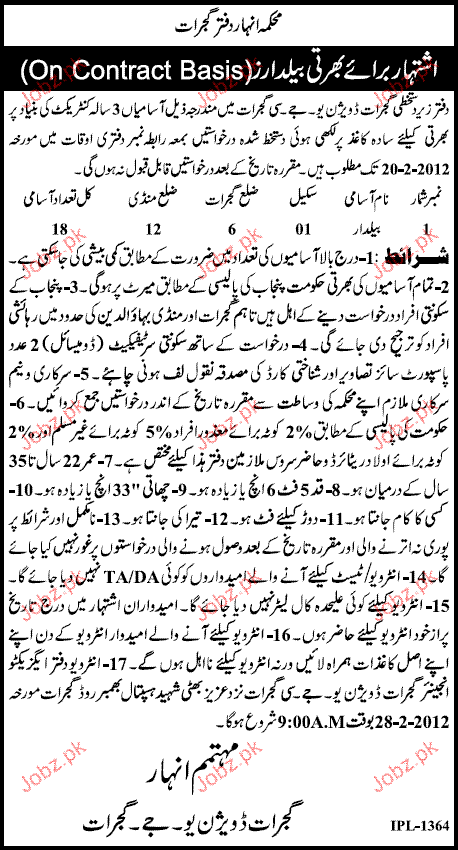 محکمہ انہار دفتر گجرات
اشتہار برائے بھرتی بیلدارز (On Contract Basis)
دفتر زیر دستخطی گجرات ڈویژن یو۔ جے۔ سی گجرات میں مندرجہ ذیل آسامیاں 3 سالہ کنٹریکٹ کی بنیاد پر
بھرتی کیلئے سادہ کاغذ پر لکھی ہوئی دستخط شدہ درخواستیں بمعہ رابطہ نمبر دفتری اوقات میں مورخہ
20-2-2012 تک مطلوب ہیں۔ مقررہ تاریخ کے بعد درخواستیں قابل قبول نہ ہوں گی۔
نمبر شمار نام آسامی سکیل ضلع گجرات ضلع منڈی کل تعداد آسامی
1 بیلدار 01 6 12 18
شرائط: 1- درج بالا آسامیوں کی تعداد میں ضرورت کے مطابق کمی بیشی کی جا سکتی ہے۔
2- تمام آسامیوں کی بھرتی حکومت پنجاب کی پالیسی کے مطابق میرٹ پر ہوگی۔ 3- پنجاب کے
سکونتی افراد درخواست دینے کے اہل ہیں تاہم گجرات اور منڈی بہاؤالدین کی حدود میں رہائشی
افراد کو ترجیح دی جائے گی۔ 4- درخواست کے ساتھ سکونتی سرٹیفکیٹ (ڈومیسائل) 2 عدد
پاسپورٹ سائز تصاویر اور شناختی کارڈ کی مصدقہ نقول لف ہونی چاہئے۔ 5- سرکاری و نیم
سرکاری ملازم اپنے محکمہ کی وساطت سے مقررہ تاریخ کے اندر درخواستیں جمع کروائیں۔ 6-
حکومت کی پالیسی کے مطابق 2% کوٹہ برائے معذور افراد 5% کوٹہ برائے غیر مسلم اور 2%
کوٹہ برائے اولاد ریٹائرڈ و حاضر سروس ملازمین دفتر ہذا کیلئے مختص ہے۔ 7- عمر 22 سال تا 35
سال کے درمیان ہو۔ 8- قد 5 فٹ 6 انچ یا زیادہ ہو۔ 9- چھاتی "33 انچ یا زیادہ ہو۔ 10-
کسی کا کام جانتا ہو۔ 11- دوڑ کیلئے فٹ ہو۔ 12- تیرا کی جانتا ہو۔ 13- نامکمل اور شرائط پر
پوری نہ اترنے والی اور مقررہ تاریخ کے بعد وصول ہونے والی درخواستوں پر غور نہیں کیا جائے
گا۔ 14- انٹرویو/ٹیسٹ کیلئے آنے والے امیدواروں کو کوئی TA/DA نہیں دیا جائے گا۔
15- انٹرویو کیلئے کوئی علیحدہ کال لیٹر نہیں دیا جائے گا۔ امیدواران اشتہار میں درج تاریخ
پر از خود انٹرویو کیلئے حاضر ہوں۔ 16- انٹرویو کیلئے آنے والے امیدوار انٹرویو کے دن اپنے
اپنے اصل کاغذات ہمراہ لائیں ورنہ انٹرویو کیلئے نااہل ہوں گے۔ 17- انٹرویو دفتر ایگزیکٹو
انجینئر گجرات ڈویژن یو۔ جے۔ سی گجرات نزد عزیز بھٹی شہید ہسپتال بھمبر روڈ گجرات مورخہ
28-2-2012 بوقت 9:00A.M شروع ہوگا۔
مہتمم انہار
گجرات ڈویژن یو۔ جے۔ گجرات
IPL-1364
Jobz.pk